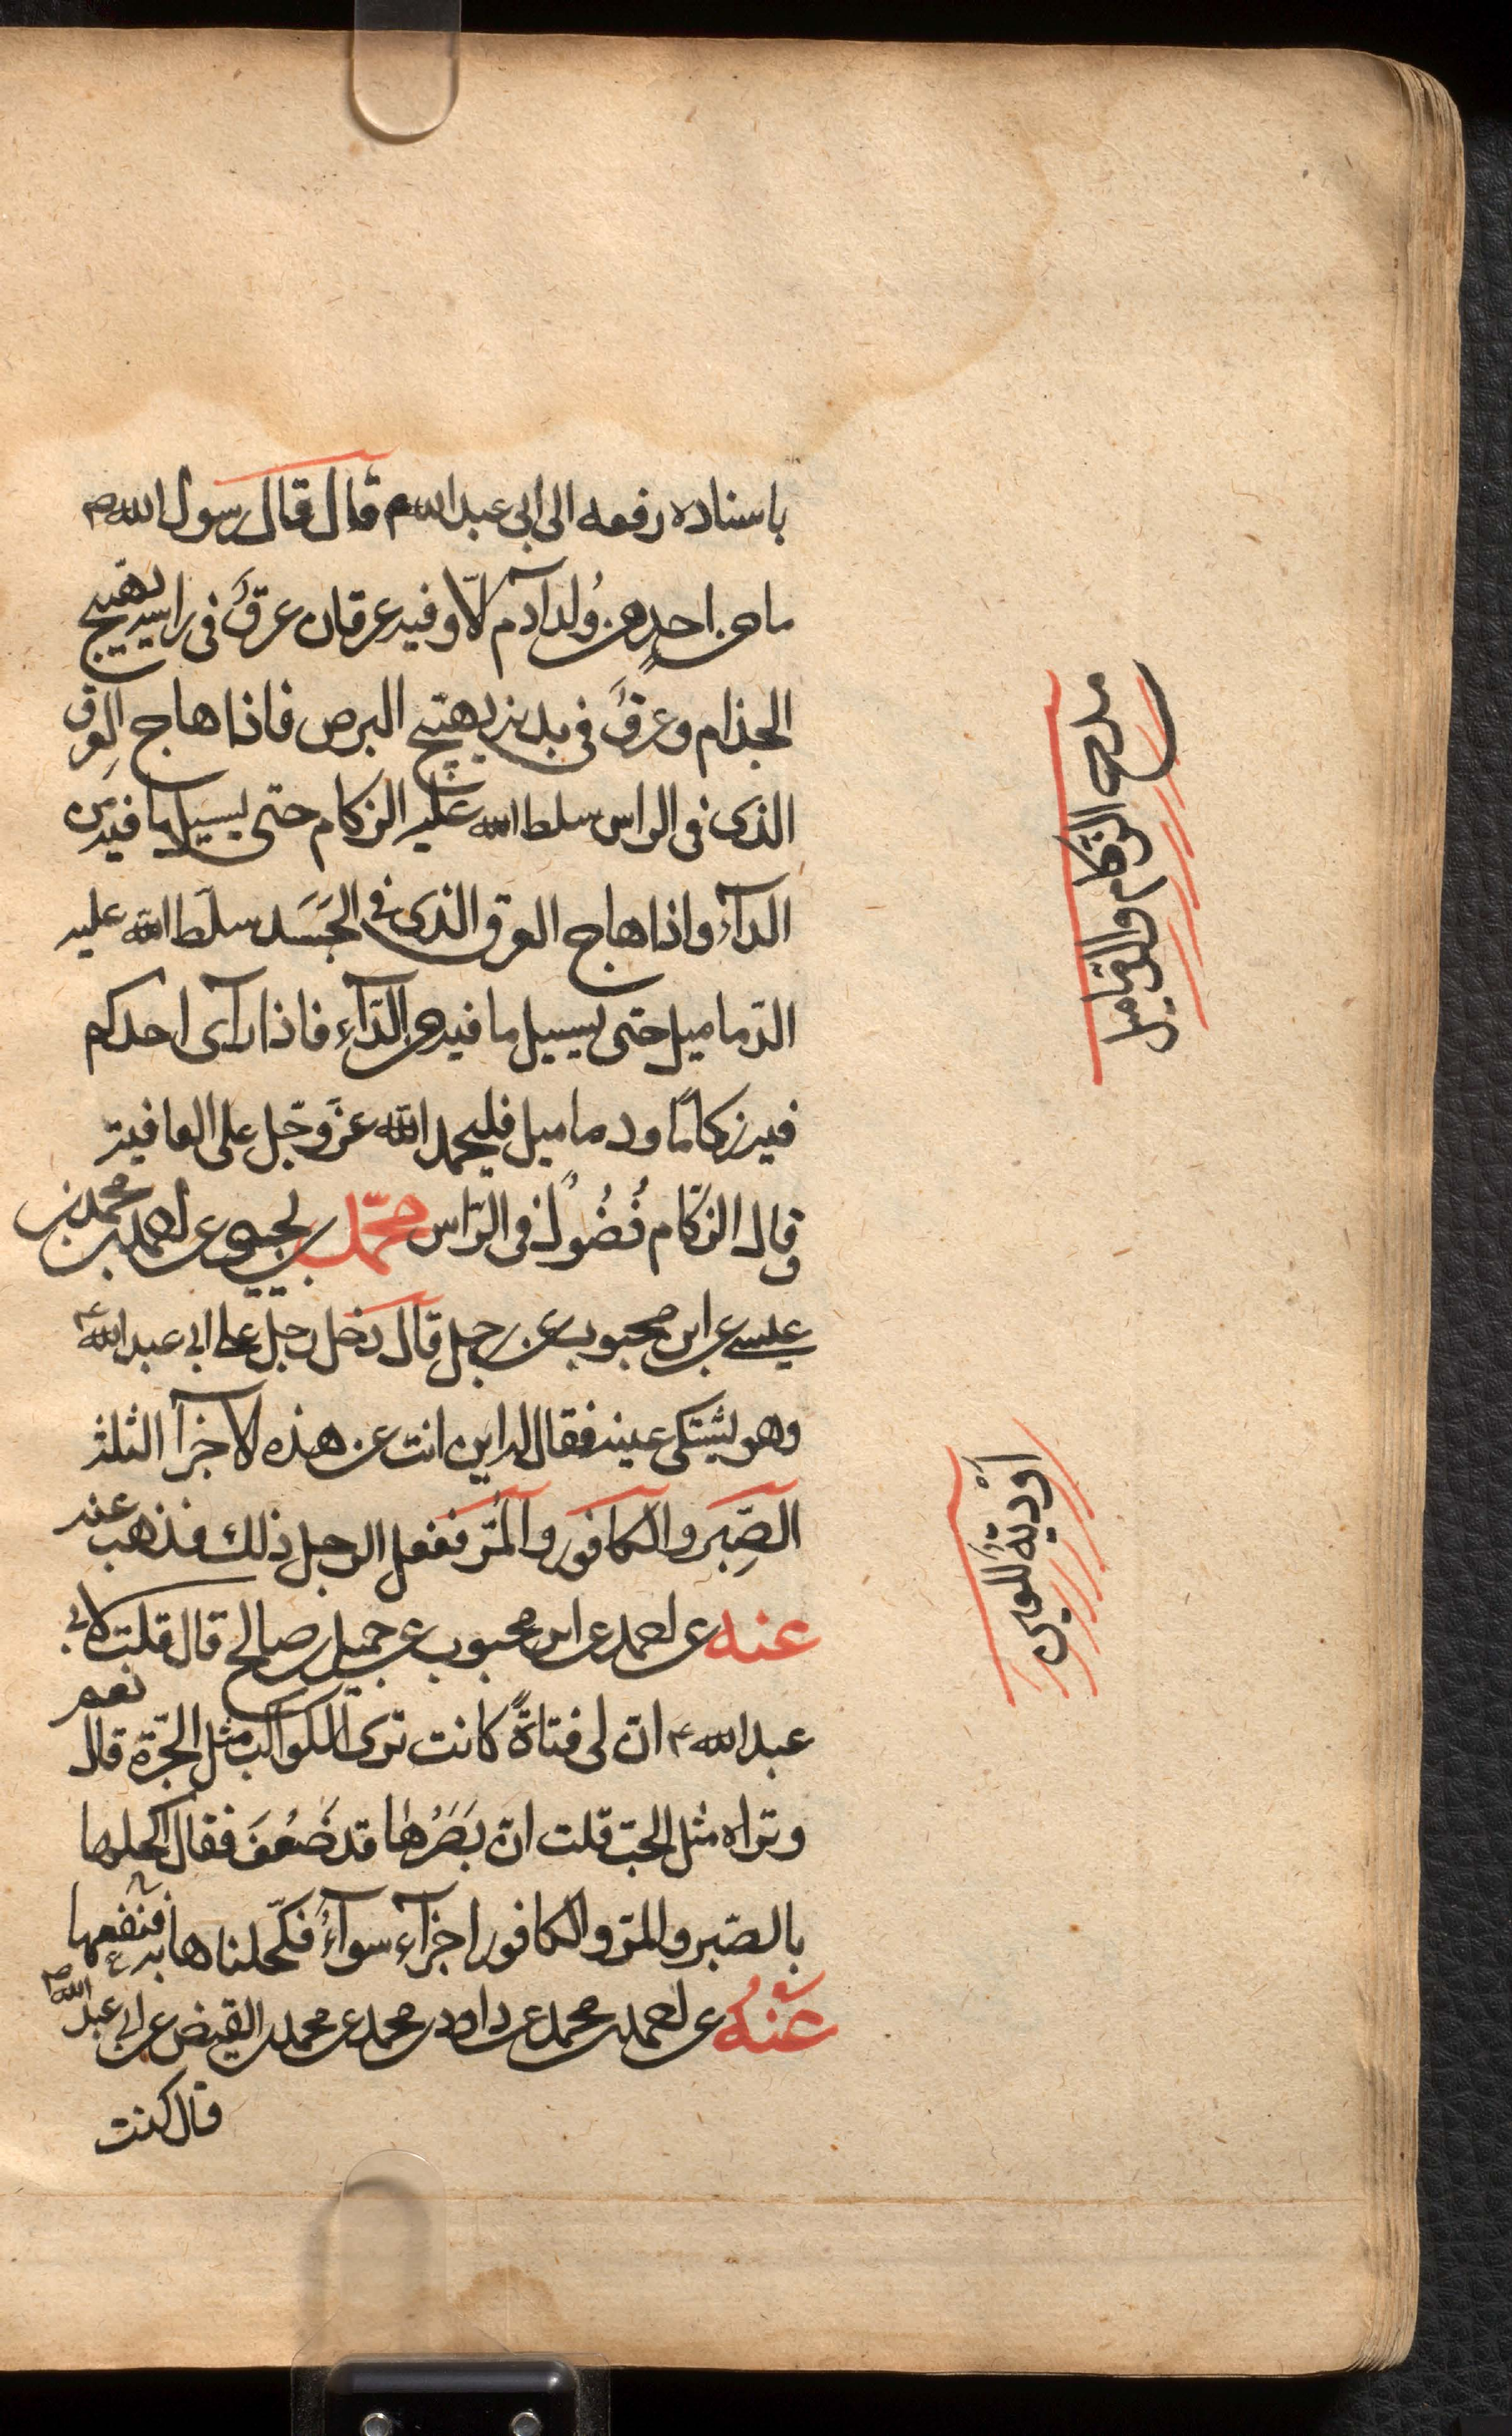 باسناده رفعه الى ابى عبد الله م قال قال رسول الله ص
ما من احدٍ من وُلد آدم الّا وفيه عرقان عرقٌ فى راسه يهيّج
الجذام وعرقٌ فى بدنه يهيّج البرص فاذا هاج العرق
الذى فى الراس سلط الله عليه الزكام حتى يسيل ما فيه من
الدآء واذا هاج العرق الذى فى الجَسَد سلّط الله عليه
الدّماميل حتى يسيل ما فيه من الدّآء فاذا رآى احدكم
فيه زكامًا ودماميل فليحمد الله عزّ وجّل على العافية
وقال الزكام فُضُولٌ فى الرّاس محمّد بن يحيى عن احمد بن محمد بن
عيسى عن ابن محبوب عن رجل قال دخل رجل على ابى عبد الله ع
وهو يشتكى عينه فقال له اين انت عن هذه الاجزآ الثلثة
الصّبِر والكافور والمُرّ ففعل الرجل ذلك فذهب عنه
عنه عن احمد عن ابن محبوب عن جميل بن صالح قال قلت لابى
عبد الله ع انّ لى فتاةً كانت ترى الكواكب مثل الجّرة قال نعم
وتراه مثل الحبّ قلت انّ بَصَرُها قد ضَعُفَ فقال اكحلها
بالصّبر والمرّ والكافور اجزآء سوآءً فكّحلناها به فنفعها
عَنْهُ عن احمد بن محمد عن داود بن محمد عن محمد بن الفيض عن ابى عبد الله ص
قال كنت
مدح الزكام والدّماميل
اَوْدية للعين